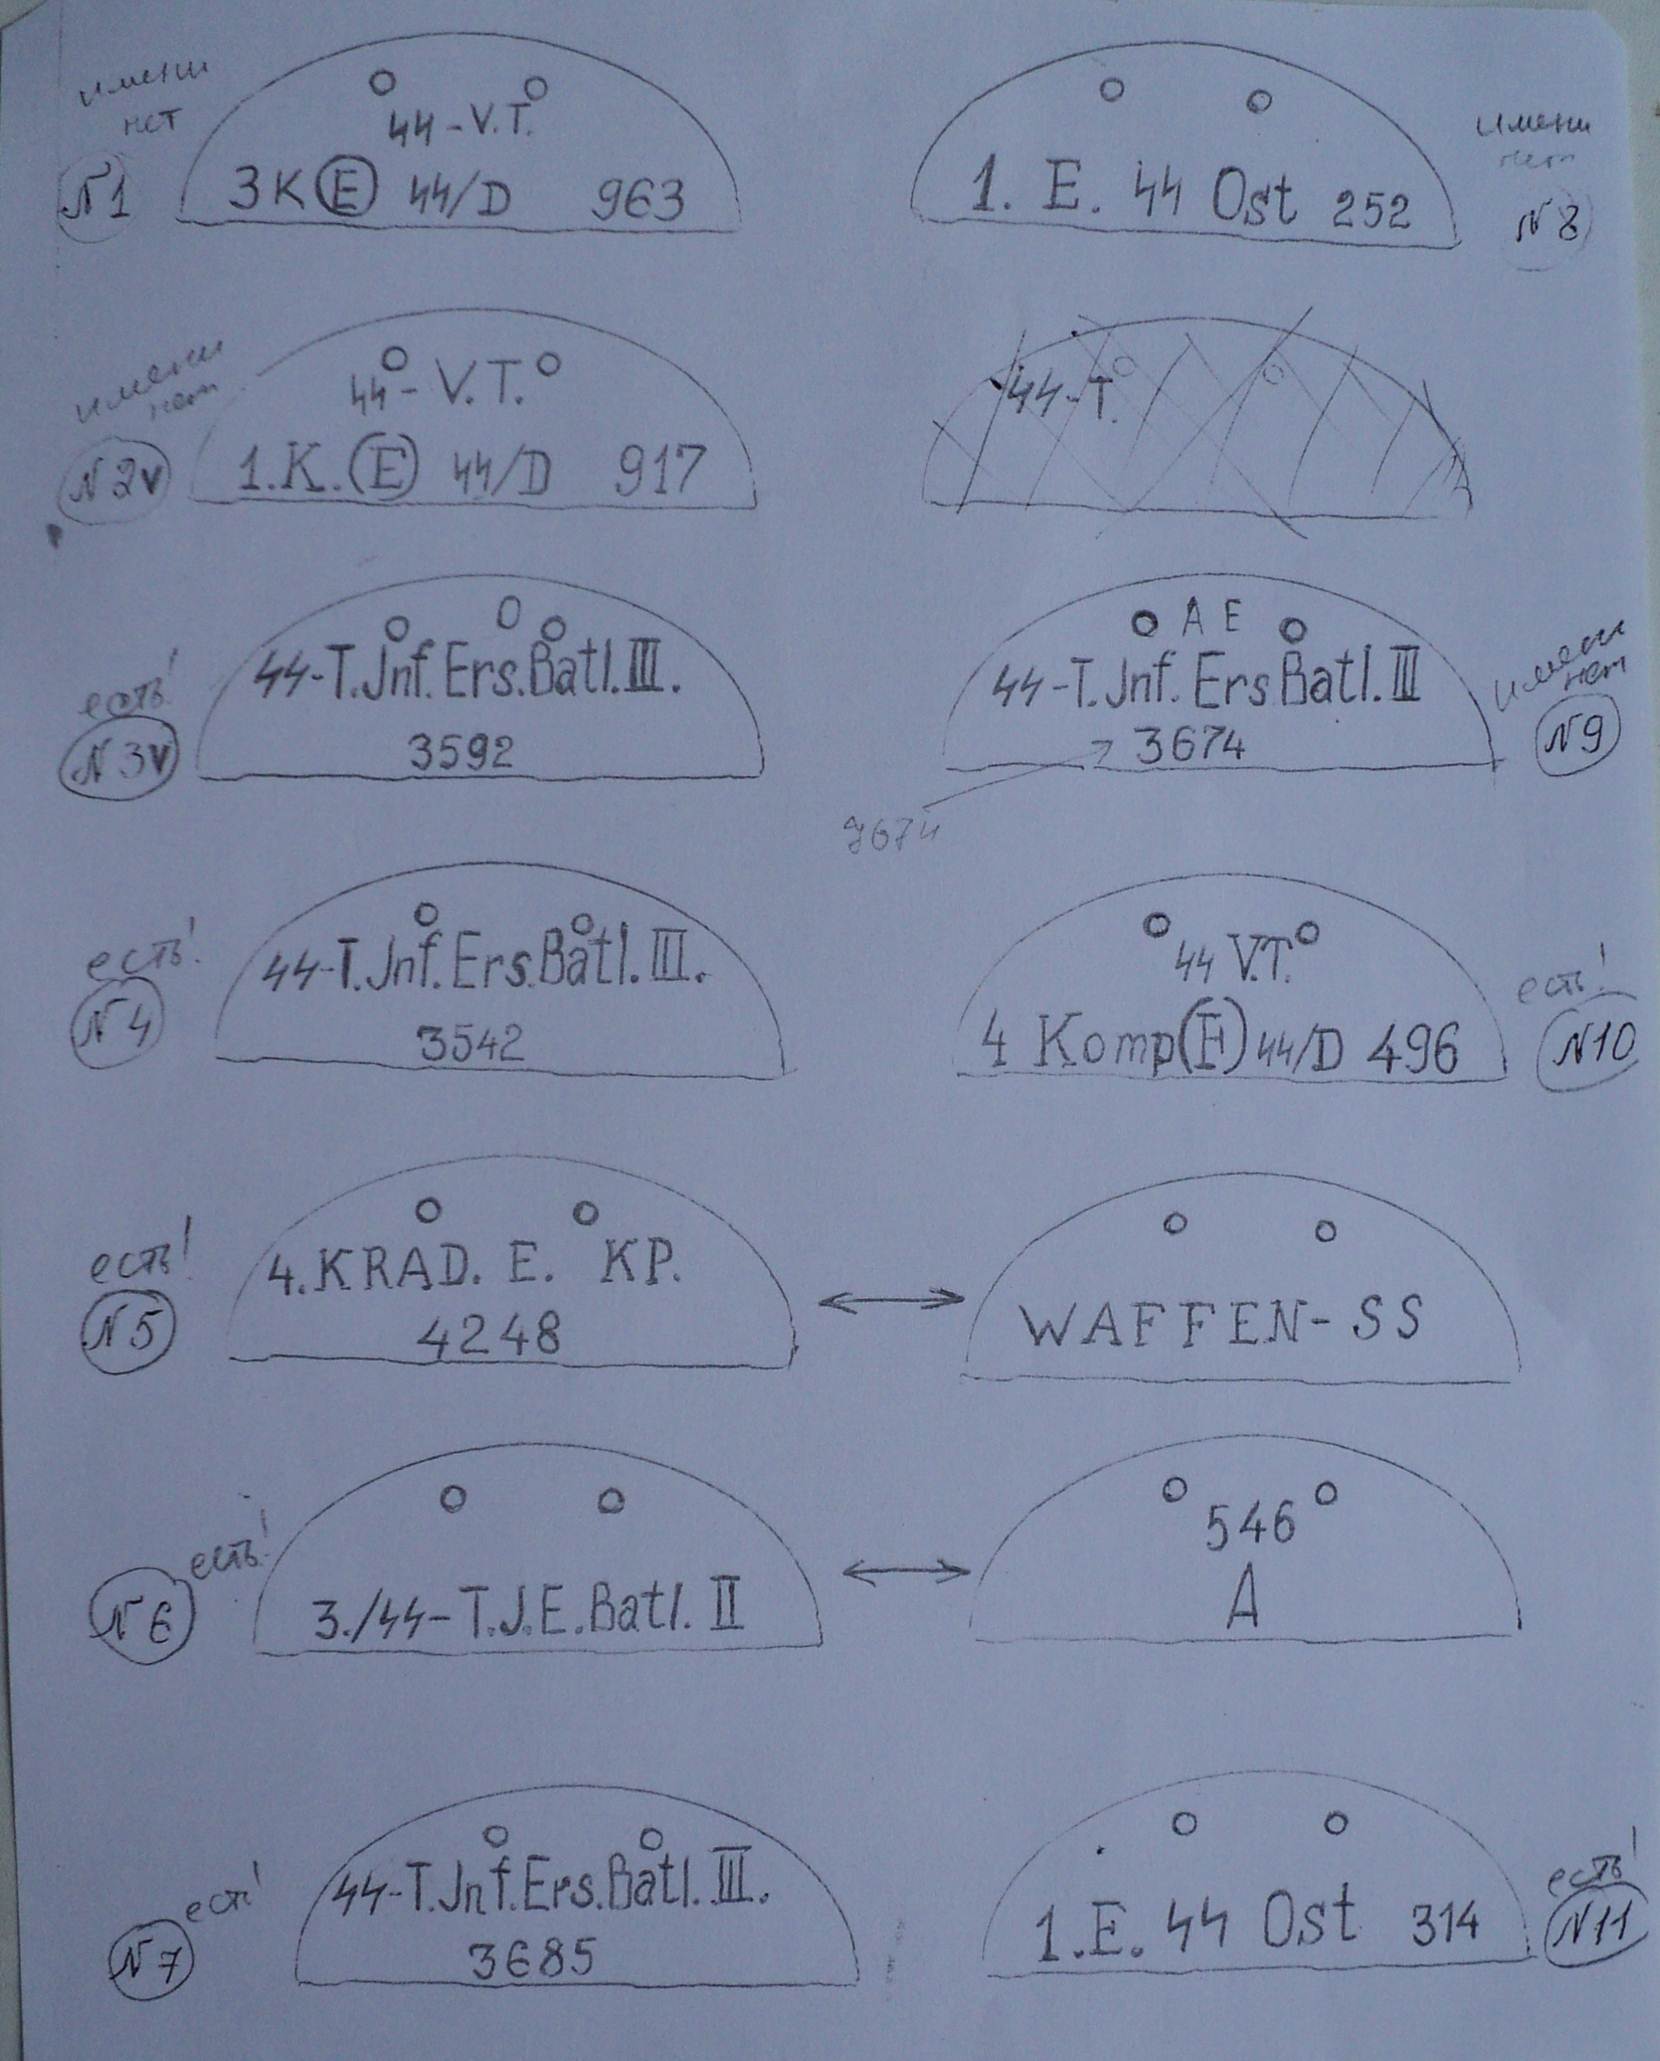 имени
нет
44-V.T.
N1
3K(E) 44/D 963
1. E. 44 Ost 252
имени
нет
N8
имени
нет
44-V.T.
N2v
1.K.(E) 44/D 917
44-T.
O
44-T.Jnf.Ers.Batl.III.
3592
есть!
N3v
A E
44-T.Jnf.Ers Batl.III
3674
имени
нет
N9
44-T.Jnf.Ers.Batl.III.
3542
есть!
N4
44 V.T.
4 Komp(E)44/D 496
есть!
N10
4.KRAD. E. KP.
4248
есть!
N5
WAFFEN-SS
3./44-T.J.E.Batl. II
есть!
N6
546
A
44-T.Jnf.Ers.Batl.III.
3685
есть!
N7
1.E. 44 Ost 314
есть!
N11